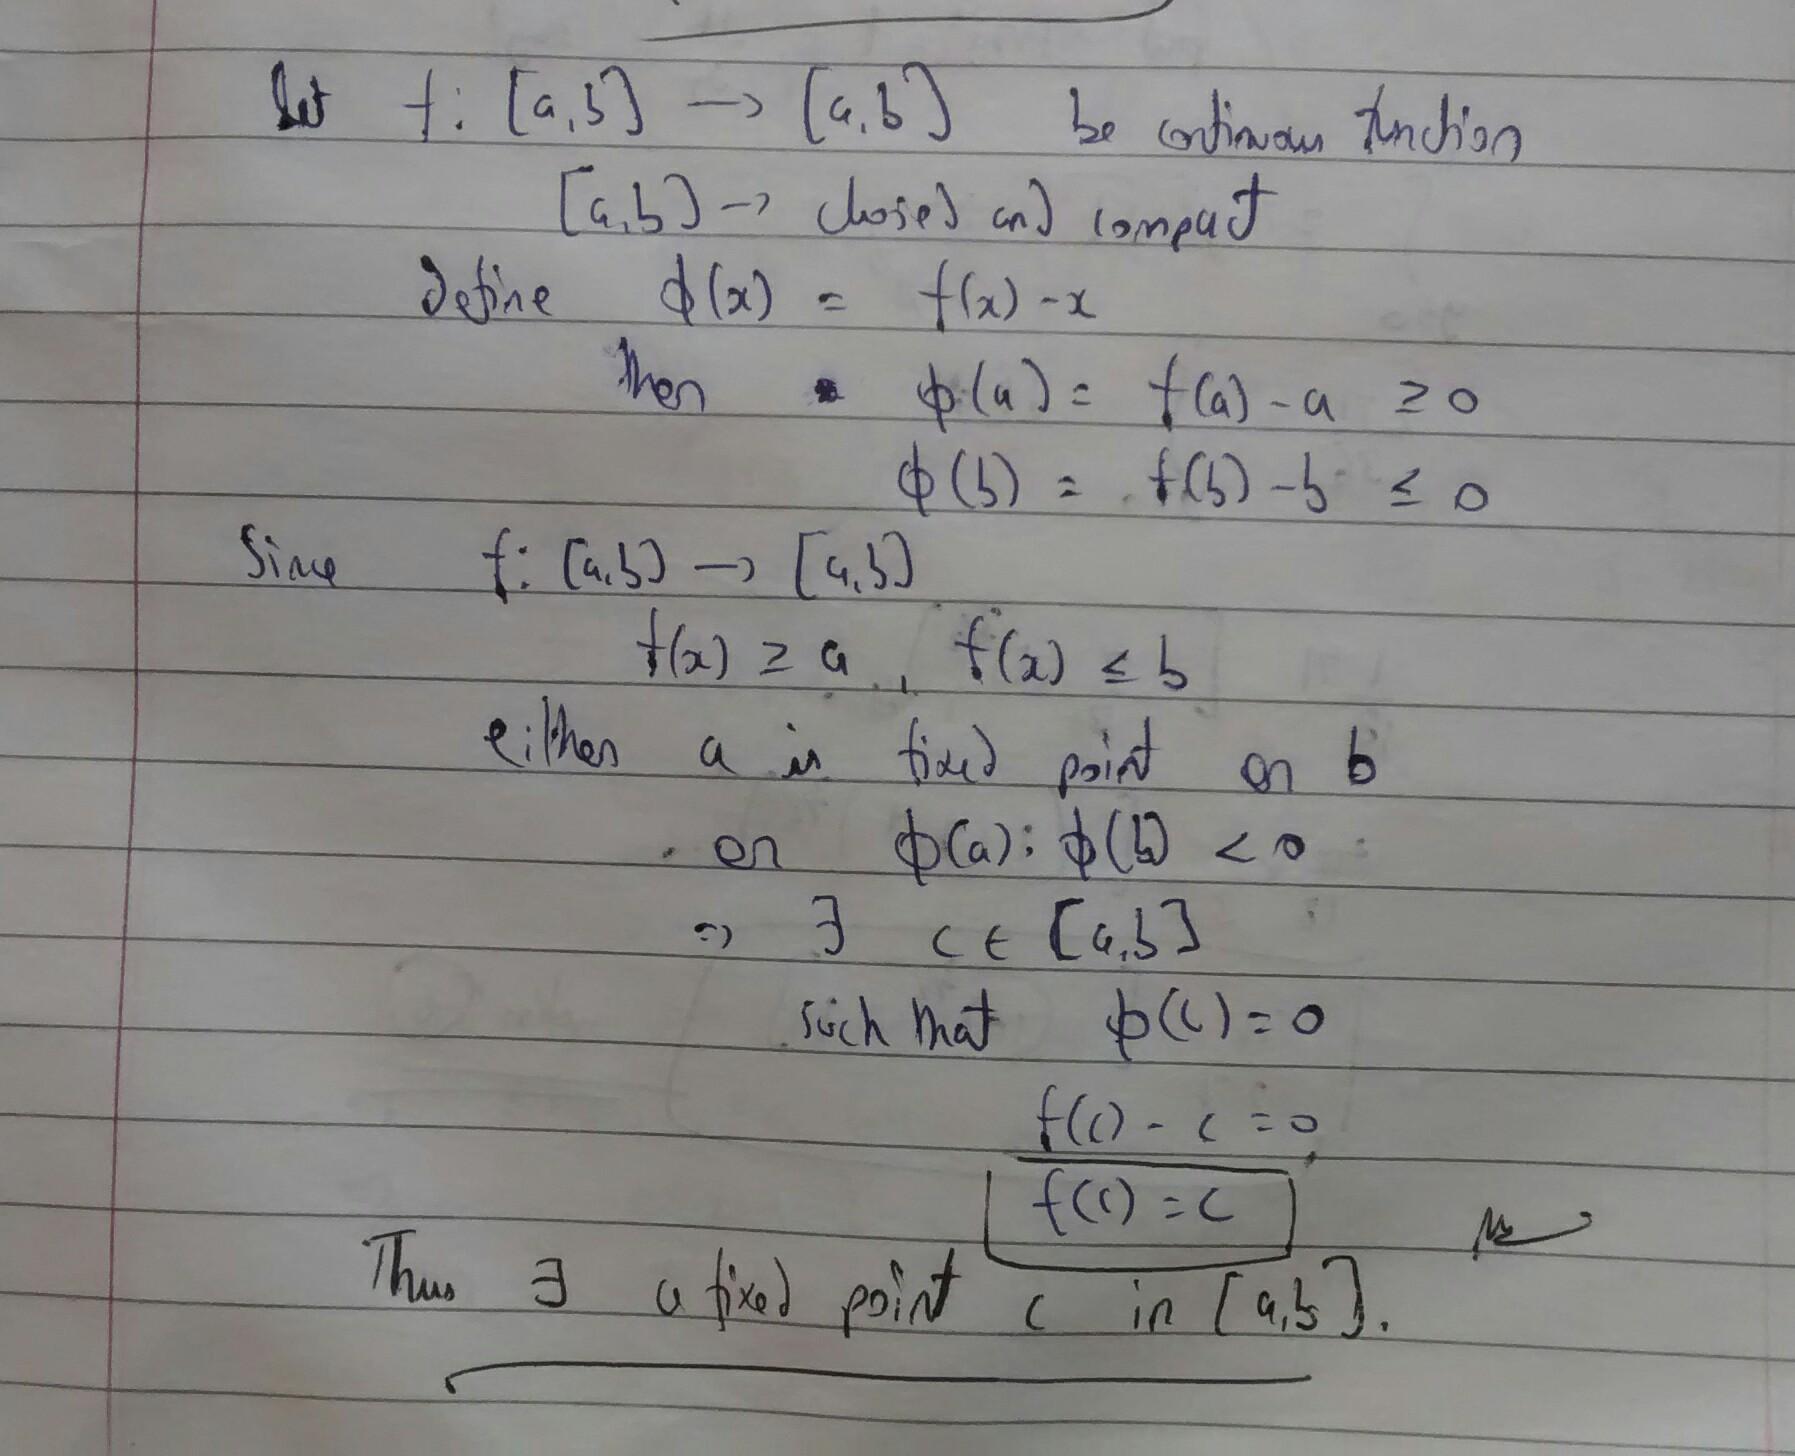 Let f: [a,b] → [a,b] be continuous function
[a,b] → closed and compact
define ϕ(x) = f(x) - x
Then ϕ(a) = f(a) - a ≥ 0
ϕ(b) = f(b) - b ≤ 0
Since f: [a,b] → [a,b]
f(x) ≥ a , f(x) ≤ b
either a is fixed point or b
or ϕ(a) · ϕ(b) < 0
⇒ ∃ c ∈ [a,b]
such that ϕ(c) = 0
f(c) - c = 0
f(c) = c
Thus ∃ a fixed point c in [a,b].